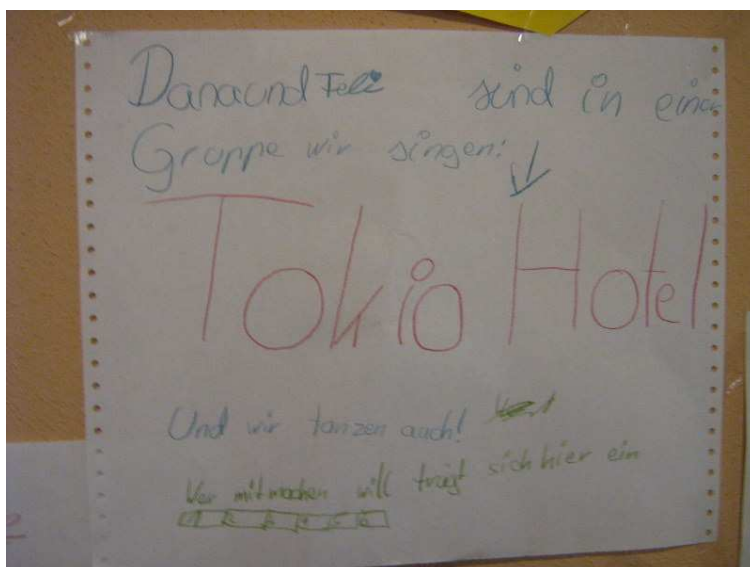 Dana und Feli sind in einer
Gruppe wir singen:
Tokio Hotel
Und wir tanzen auch!
Wer mitmachen will trägt sich hier ein
1 2 3 4 5 6